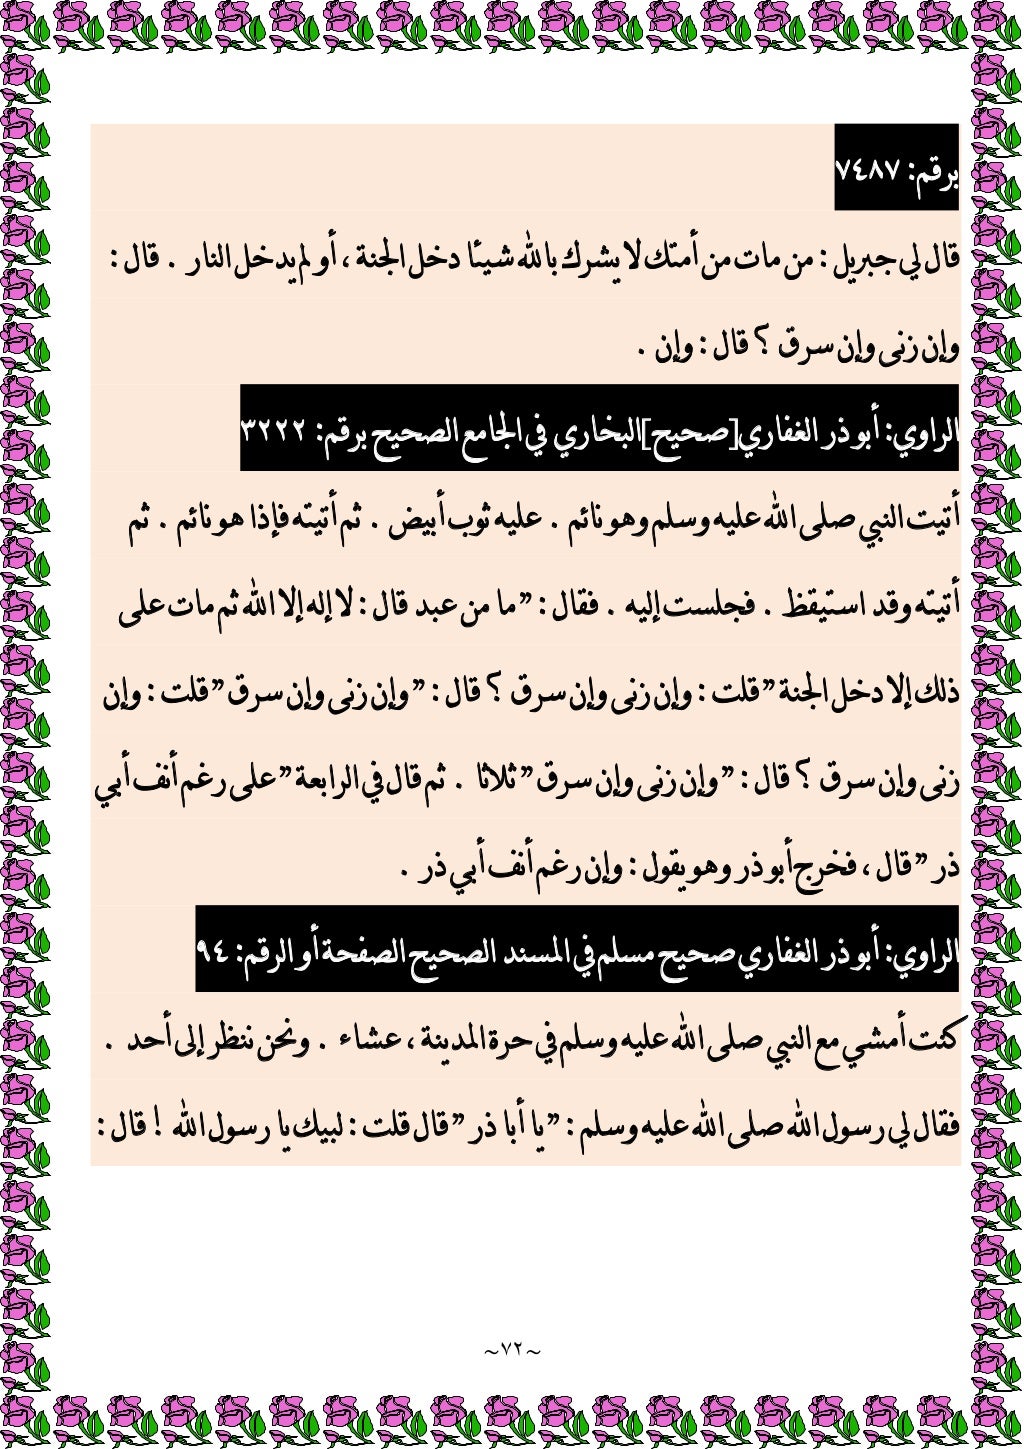 برقم: ٧٤٨٧
قال لي جبريل : من مات من أمتك لا يشرك بالله شيئا دخل الجنة ، أو لم يدخل النار . قال :
وإن زنى وإن سرق ؟ قال : وإن .
الراوي: أبو ذر الغفاري[صحيح]البخاري في الجامع الصحيح برقم: ٣٢٢٢
أتيت النبي صلى الله عليه وسلم وهو نائم . عليه ثوب أبيض . ثم أتيته فإذا هو نائم . ثم
أتيته وقد استيقظ . فجلست إليه . فقال : "ما من عبد قال : لا إله إلا الله ثم مات على
ذلك إلا دخل الجنة "قلت : وإن زنى وإن سرق ؟ قال : "وإن زنى وإن سرق "قلت : وإن
زنى وإن سرق ؟ قال : "وإن زنى وإن سرق "ثلاثا . ثم قال في الرابعة "على رغم أنف أبي
ذر "قال ، فخرج أبو ذر وهو يقول : وإن رغم أنف أبي ذر .
الراوي: أبو ذر الغفاري صحيح مسلم في المسند الصحيح الصفحة أو الرقم: ٩٤
كنت أمشي مع النبي صلى الله عليه وسلم في حرة المدينة ، عشاء . ونحن ننظر إلى أحد .
فقال لي رسول الله صلى الله عليه وسلم : "يا أبا ذر "قال قلت : لبيك يا رسول الله ! قال :
~٧٢~